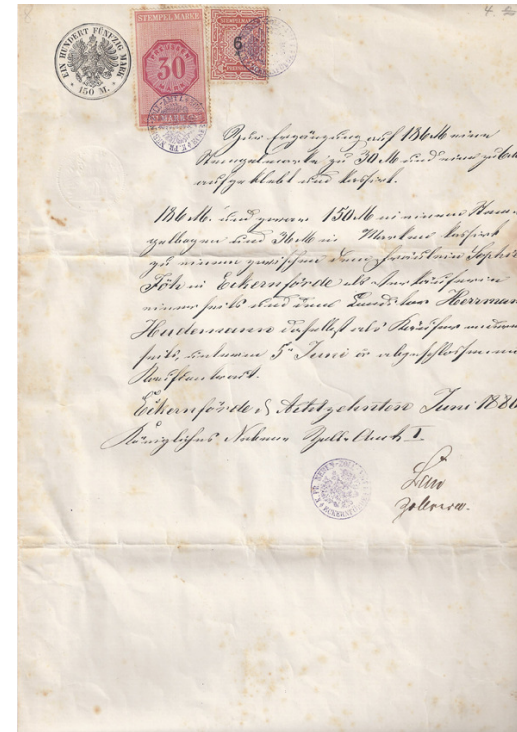 4.
EIN HUNDERT FÜNFZIG MARK
* 150 M. *
STEMPELMARKE
PREUSSEN
30
MARK
MARK
STEMPELMARKE
6
Zur Ergänzung auf 186 M eine
Stempelmarke zu 30 M und eine zu 6 M
aufgeklebt und kassirt.
186 M. und zwar 150 M in einem Stem-
pelbogen und 36 M in Marken kassirt
zu einem zwischen dem Fräulein Sophie
in Eckernförde als Verkäuferin
einerseits und dem Herrmann
Hudemann daselbst als Käufer andrer-
seits, unterm 5ten Juni cr abgeschlossenen
Kaufkontract.
Eckernförde d Achtzehnten Juni 188
Königliches Neben Zoll-Amt I.
K. PR. NEBEN-ZOLL-AMT I
ECKERNFÖRDE